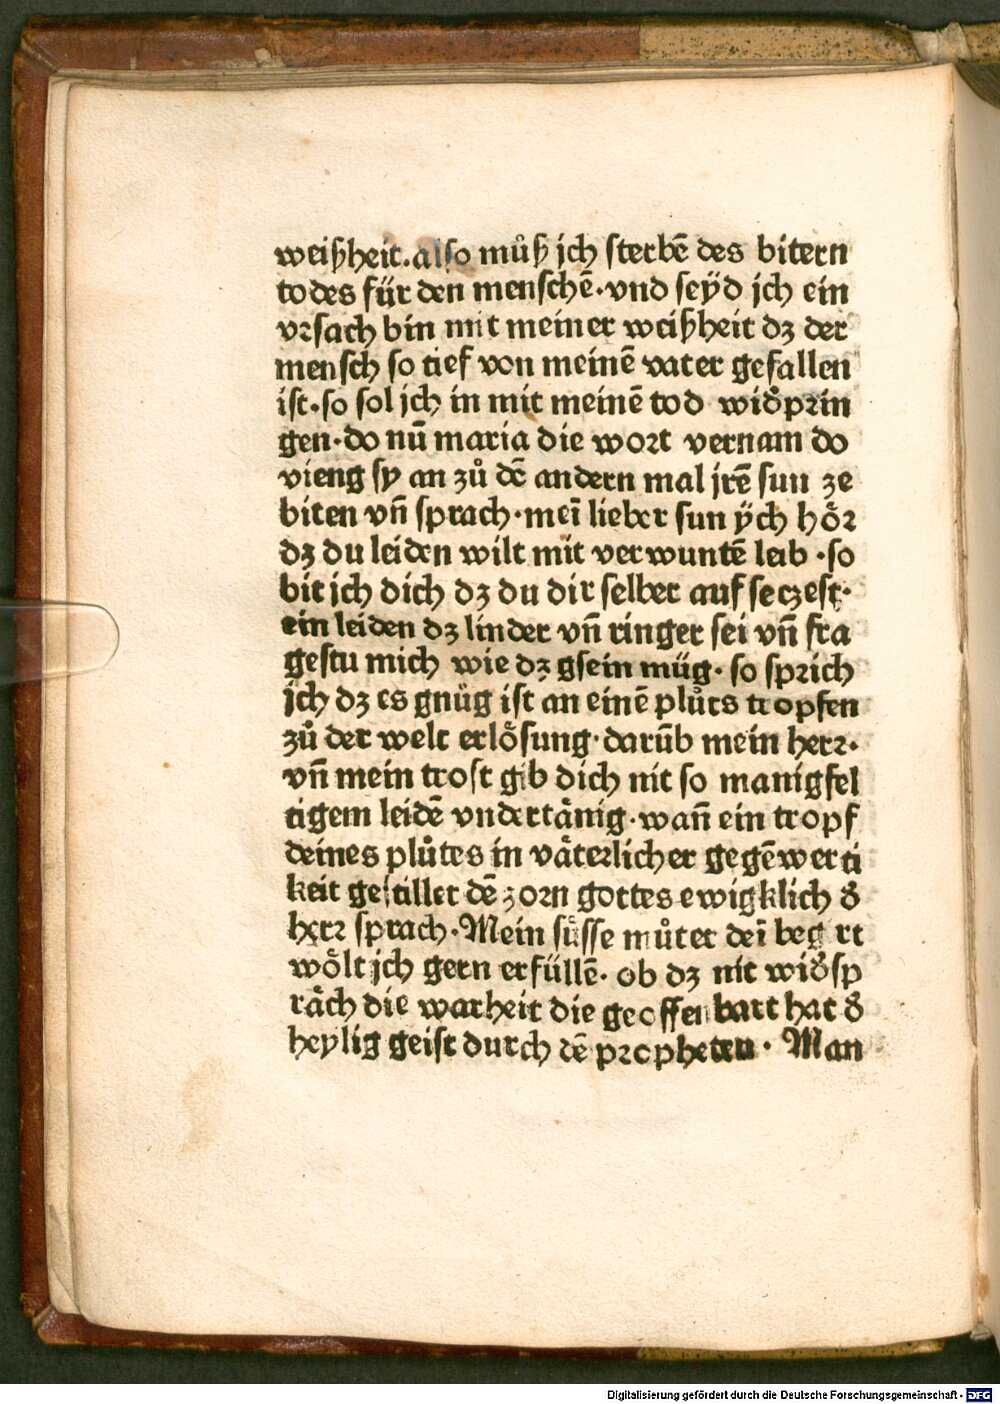 weißheit. also můß ich sterbē des bitern
todes für den menschē· vnd seÿd ich ein
vrsach bin mit meiner weißheit dꝫ der
mensch so tief von meinē vater gefallen
ist· so sol ich in mit meinē tod widꝰprin
gen· do nū maria die wort vernam do
vieng sy an zů dē andern mal irē sun ze
biten vn̄ sprach· meī lieber sun ÿch hör
dꝫ du leiden wilt mit verwuntē leib · so
bit ich dich dꝫ du dir selber auf seczest·
ein leiden dꝫ linder vn̄ ringer sei vn̄ fra
gestu mich wie dꝫ gsein müg· so sprich
ich dꝫ es gnůg ist an einē plůts tropfen
zů der welt erlösung· darūb mein herr·
vn̄ mein trost gib dich nit so manigfel
tigem leidē vndertänig· wan̄ ein tropf
deines plůtes in väterlicher gegēwerti
keit gestillet dē zorn gottes ewigklich dꝰ
herr sprach· Mein süsse můter deī beg rt
wölt ich gern erfüllē· ob dꝫ nit widꝰsp
räch die warheit die geoffenbart hat dꝰ
heylig geist durch dē propheten· Man
Digitalisierung gefördert durch die Deutsche Forschungsgemeinschaft - DFG